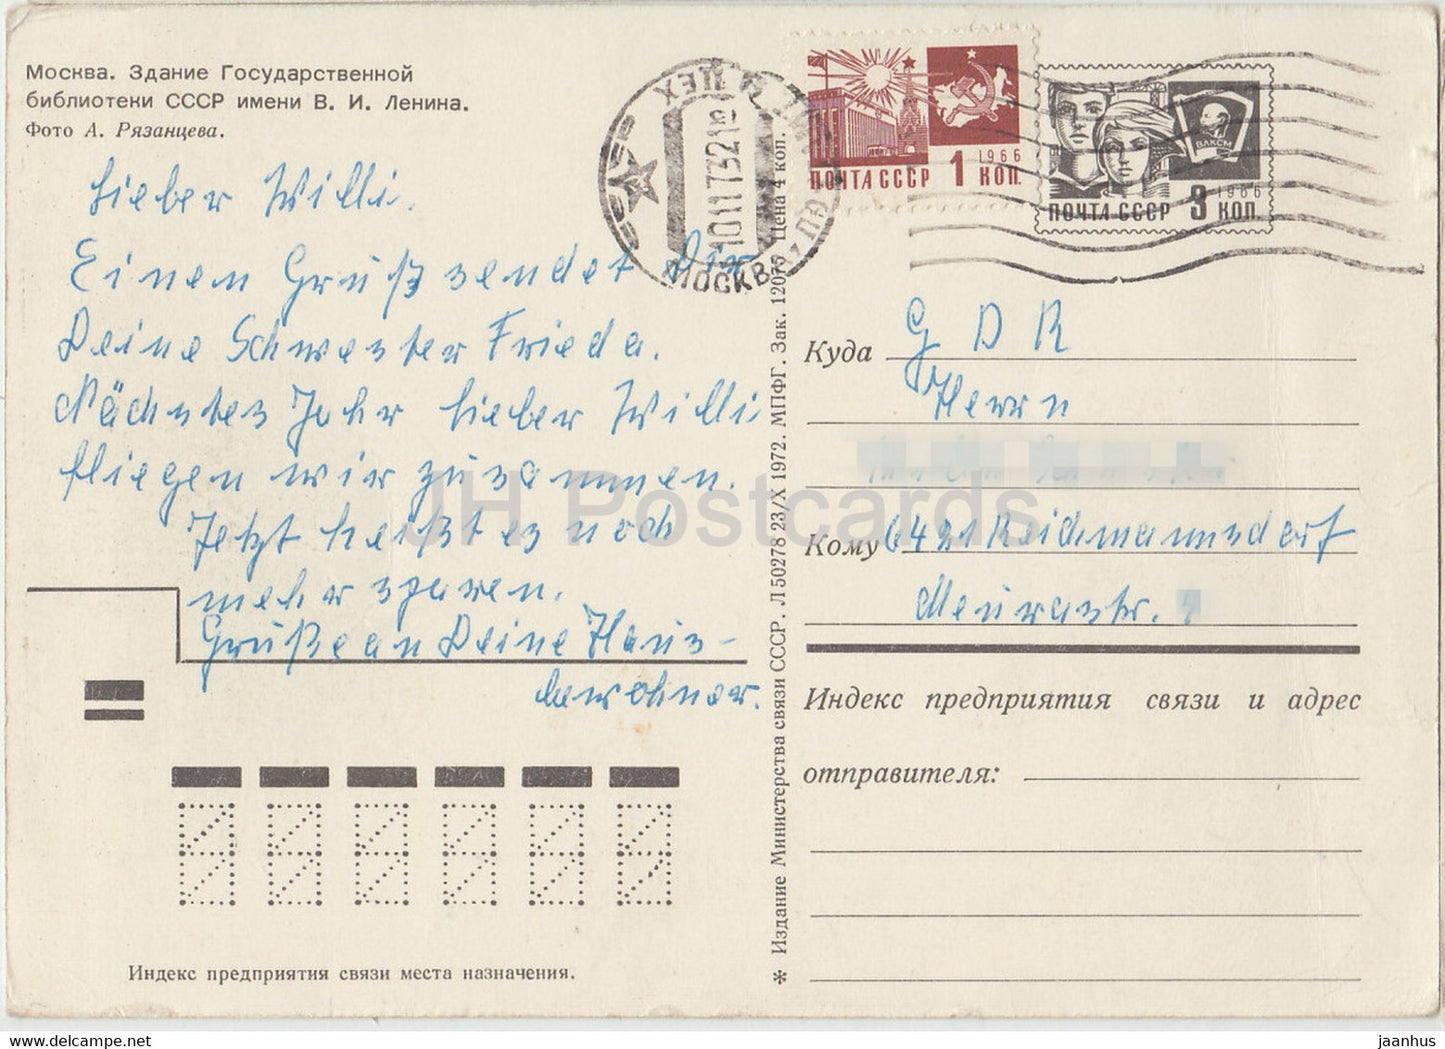 Москва. Здание Государственной
библиотеки СССР имени В. И. Ленина.
Фото А. Рязанцева.
Lieber Willi.
Einen Gruß sendet Dir
Deine Schwester Frieda.
Nächstes Jahr lieber Willi
fliegen wir zusammen.
Jetzt heißt es noch
mehr sparen.
Grüße an Deine Haus-
bewohner.
Индекс предприятия связи места назначения.
* Издание Министерства связи СССР. Л 50278 23/X 1972. МПФГ. Зак. 12075 Цена 4 коп.
МОСКВА
10 11 73 21
1966
ПОЧТА СССР 1 КОП.
ВЛКСМ
1966
ПОЧТА СССР 3 КОП.
Куда G D R
Herrn
Кому 6421 Reichmannsdorf
Индекс предприятия связи и адрес
отправителя:
JH Postcards
www.delcampe.net
jaanhus